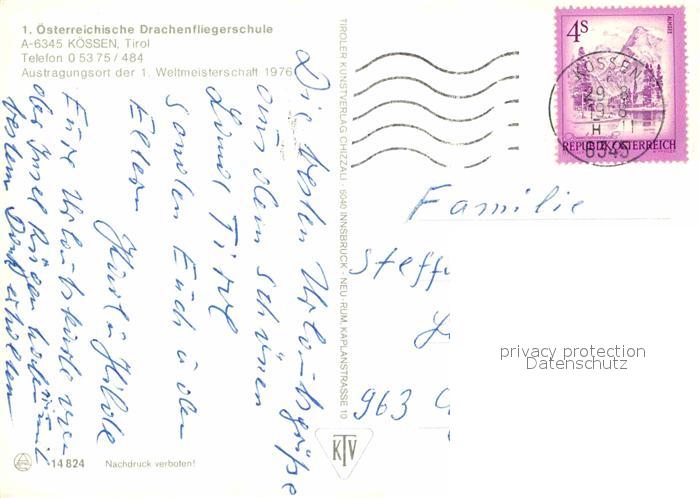 1. Österreichische Drachenfliegerschule
A-6345 KÖSSEN, Tirol
Telefon 0 53 75 / 484
Austragungsort der 1. Weltmeisterschaft 1976
Die besten Urlaubsgrüße
aus dem schönen
Land Tirol
senden Euch u. den
Eltern
Kurt u. Hilde
Eure Urlaubskarte von
der Insel Rügen haben wir mit
bestem Dank erhalten
14 824
Nachdruck verboten!
TIROLER KUNSTVERLAG CHIZZALI · 6040 INNSBRUCK - NEU-RUM, KAPLANSTRASSE 10
KTV
4S
ALMSEE
REPUBLIK ÖSTERREICH
KÖSSEN
6345
Familie
Steff
963
privacy protection
Datenschutz